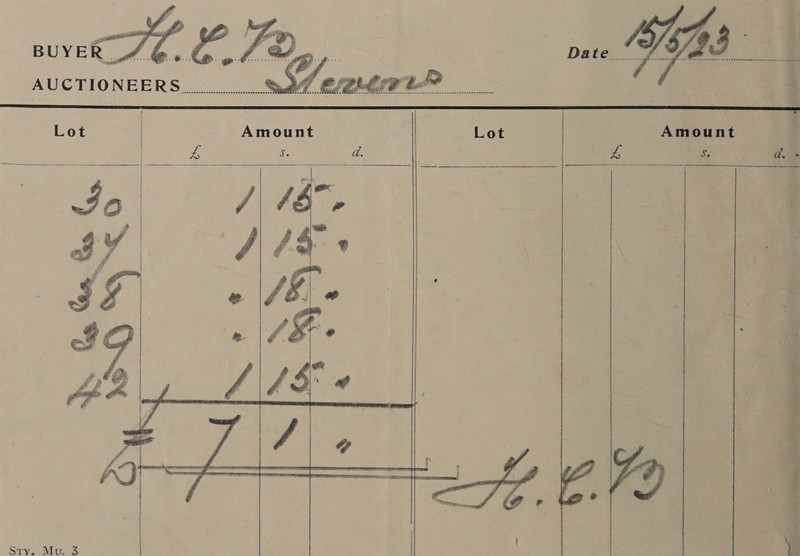 BUYER H.C.B. Date 15/5/23
AUCTIONEERS Stevens
Lot Amount Lot Amount
£ s. d. £ s. d.
30 1 15 "
34 1 15 "
38 " 18 "
39 " 18 "
42 1 15 "
£ 7 1 "
H.C.B
STY. MU. 3